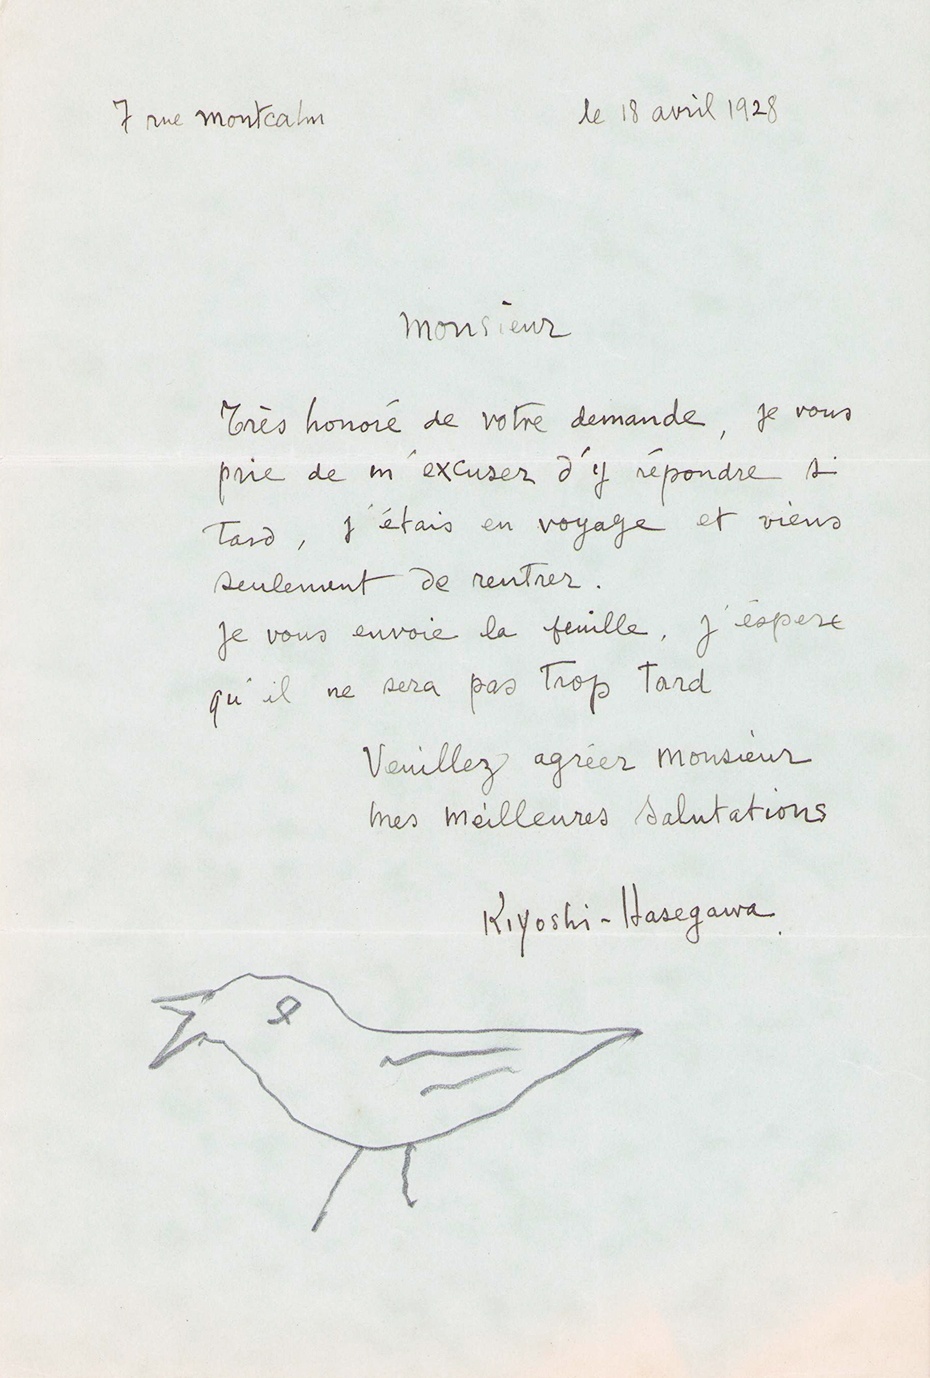 7 rue montcalm
le 18 avril 1928
Monsieur
Très honoré de votre demande, je vous
prie de m'excuser d'y répondre si
tard, j'étais en voyage et viens
seulement de rentrer.
Je vous envoie la feuille, j'éspere
qu'il ne sera pas trop tard
Veuillez agréer Monsieur
mes meilleures salutations
Kiyoshi-Hasegawa.